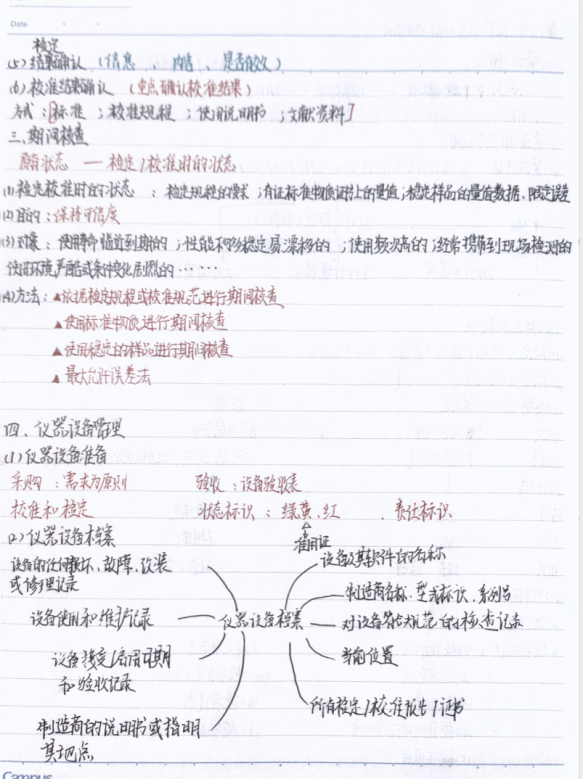 Date
检定
(5) 结果确认 (信息 、内容、是否有效)
(6) 校准结果确认 (重点确认校准结果)
方式:[标准 ;校准规程 ;使用说明书 ;文献资料]
三、期间核查
原始状态 — 检定/校准时的状态
(1) 检定校准时的状态 : 检定规程的要求 ;有证标准物质证书上的量值;稳定样品的量值数据、限定误差
(2) 目的:保持可信度
(3) 对象:使用寿命临近到期的 ;性能不够稳定易漂移的 ;使用频次高的 ;经常携带到现场检测的
使用环境严酷或条件变化剧烈的······
(4) 方法:▲依据检定规程或校准规范进行期间核查
▲使用标准物质进行期间核查
▲使用稳定的样品进行期间核查
▲最大允许误差法
四、仪器设备管理
(1) 仪器设备准备
采购:需求为原则 验收:设备验收表
校准和检定 状态标识:绿.黄.红 .责任标识
准用证
(2) 仪器设备档案
设备及其软件的名称
设备的任何损坏、故障、改装
或修理记录
制造商名称、型式标识、系列号
设备使用和维护记录 仪器设备档案 对设备符合规范的核查记录
设备接收/启用日期 当前位置
和验收记录
所有检定/校准报告/证书
制造商的说明书或指明
其地点
Campus